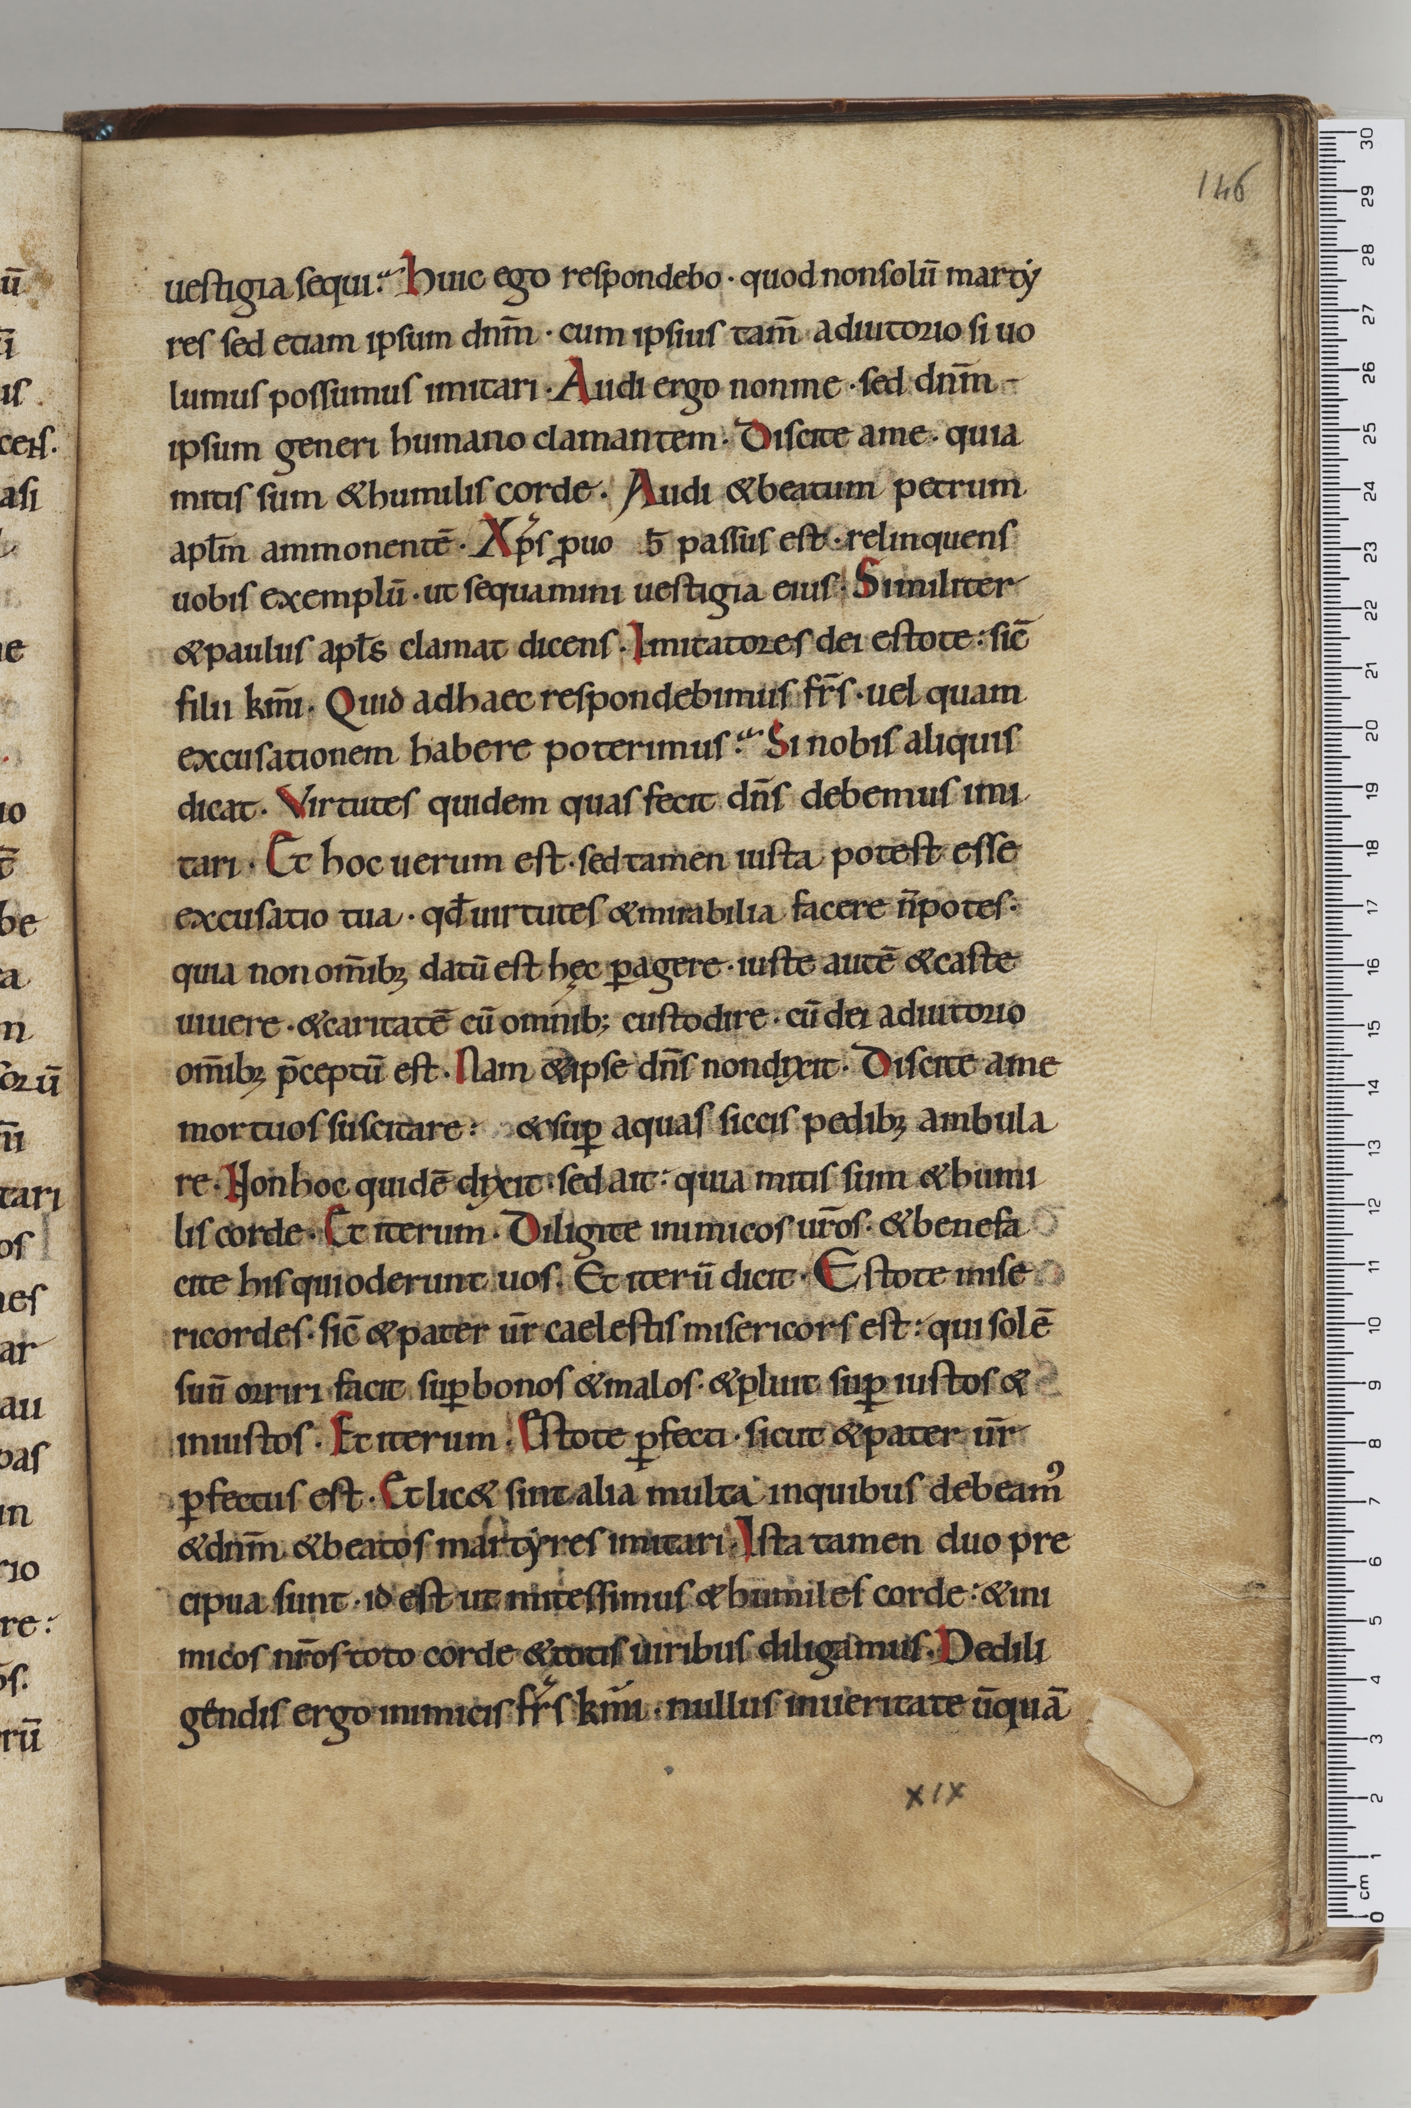 146
uestigia sequi? Huic ego respondebo · quod nonsolū marty
res sed etiam ipsum dnm̄ · cum ipsius tam̄ adiutorio si uo
lumus possumus imitari · Audi ergo nonme · sed dnm̄
ipsum generi humano clamantem · Discite ame · quia
mitis sum & humilis corde · Audi & beatum petrum
apl̄m ammonentē · Xp̄s ꝓ uo b̄ passus est · relinquens
uobis exemplū · ut sequamini uestigia eius · Similiter
& paulus apl̄s clamat dicens · Imitatores dei estote: sic̄
filii km̄i · Quid adhaec respondebimus fr̄s · uel quam
excusationem habere poterimus? Si nobis aliquis
dicat · Virtutes quidem quas fecit dn̄s debemus imi
tari · Et hoc uerum est · sed tamen iusta potest esse
excusatio tua · qđ uirtutes & mirabilia facere n̄ potes ·
quia non om̄ibꝫ datū est hęc ꝑagere · iuste autē & caste
uiuere · & caritatē cū omnib; custodire · cū dei adiutorio
om̄ibꝫ p̄ceptū est · Nam & ipse dn̄s nondixit · Discite ame
mortuos suscitare: & suꝑ aquas siccis pedibꝫ ambula
re · Non hoc quidē dixit · sed ait: quia mitis sum & humi
lis corde · Et iterum · Diligite inimicos ur̄os · & benefa
cite his quioderunt uos · Et iterū dicit · Estote mise
ricordes · sic̄ & pater ur̄ caelestis misericors est: qui solē
suū orriri facit suꝑ bonos & malos · & pluit suꝑ iustos &
iniustos · Et iterum · Estote ꝑfecti · sicut & pater ur̄
ꝑfectus est · Et lic& sint alia multa inquibus debeamꝰ
& dnm̄ & beatos martyres imitari · Ista tamen duo pre
cipua sunt · id est ut mitessimus & humiles corde: & ini
micos nr̄os toto corde & totis uiribus diligamus · Dedili
gendis ergo inimicis fr̄s km̄i · nullus inueritate ūquā
xıx